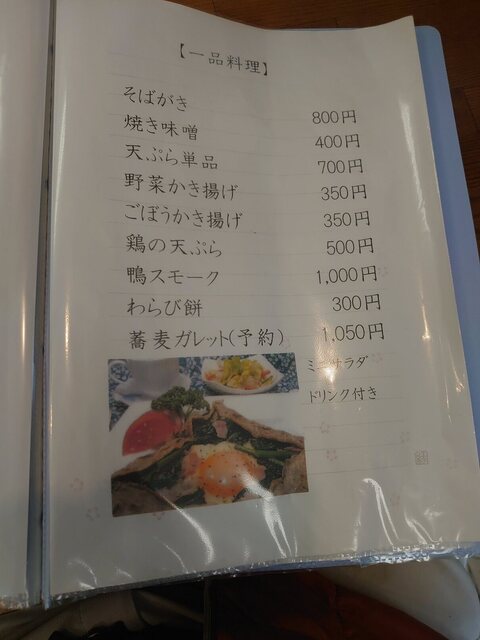 【一品料理】
そばがき 800円
焼き味噌 400円
天ぷら単品 700円
野菜かき揚げ 350円
ごぼうかき揚げ 350円
鶏の天ぷら 500円
鴨スモーク 1,000円
わらび餅 300円
蕎麦ガレット(予約) 1,050円
ミニサラダ
ドリンク付き